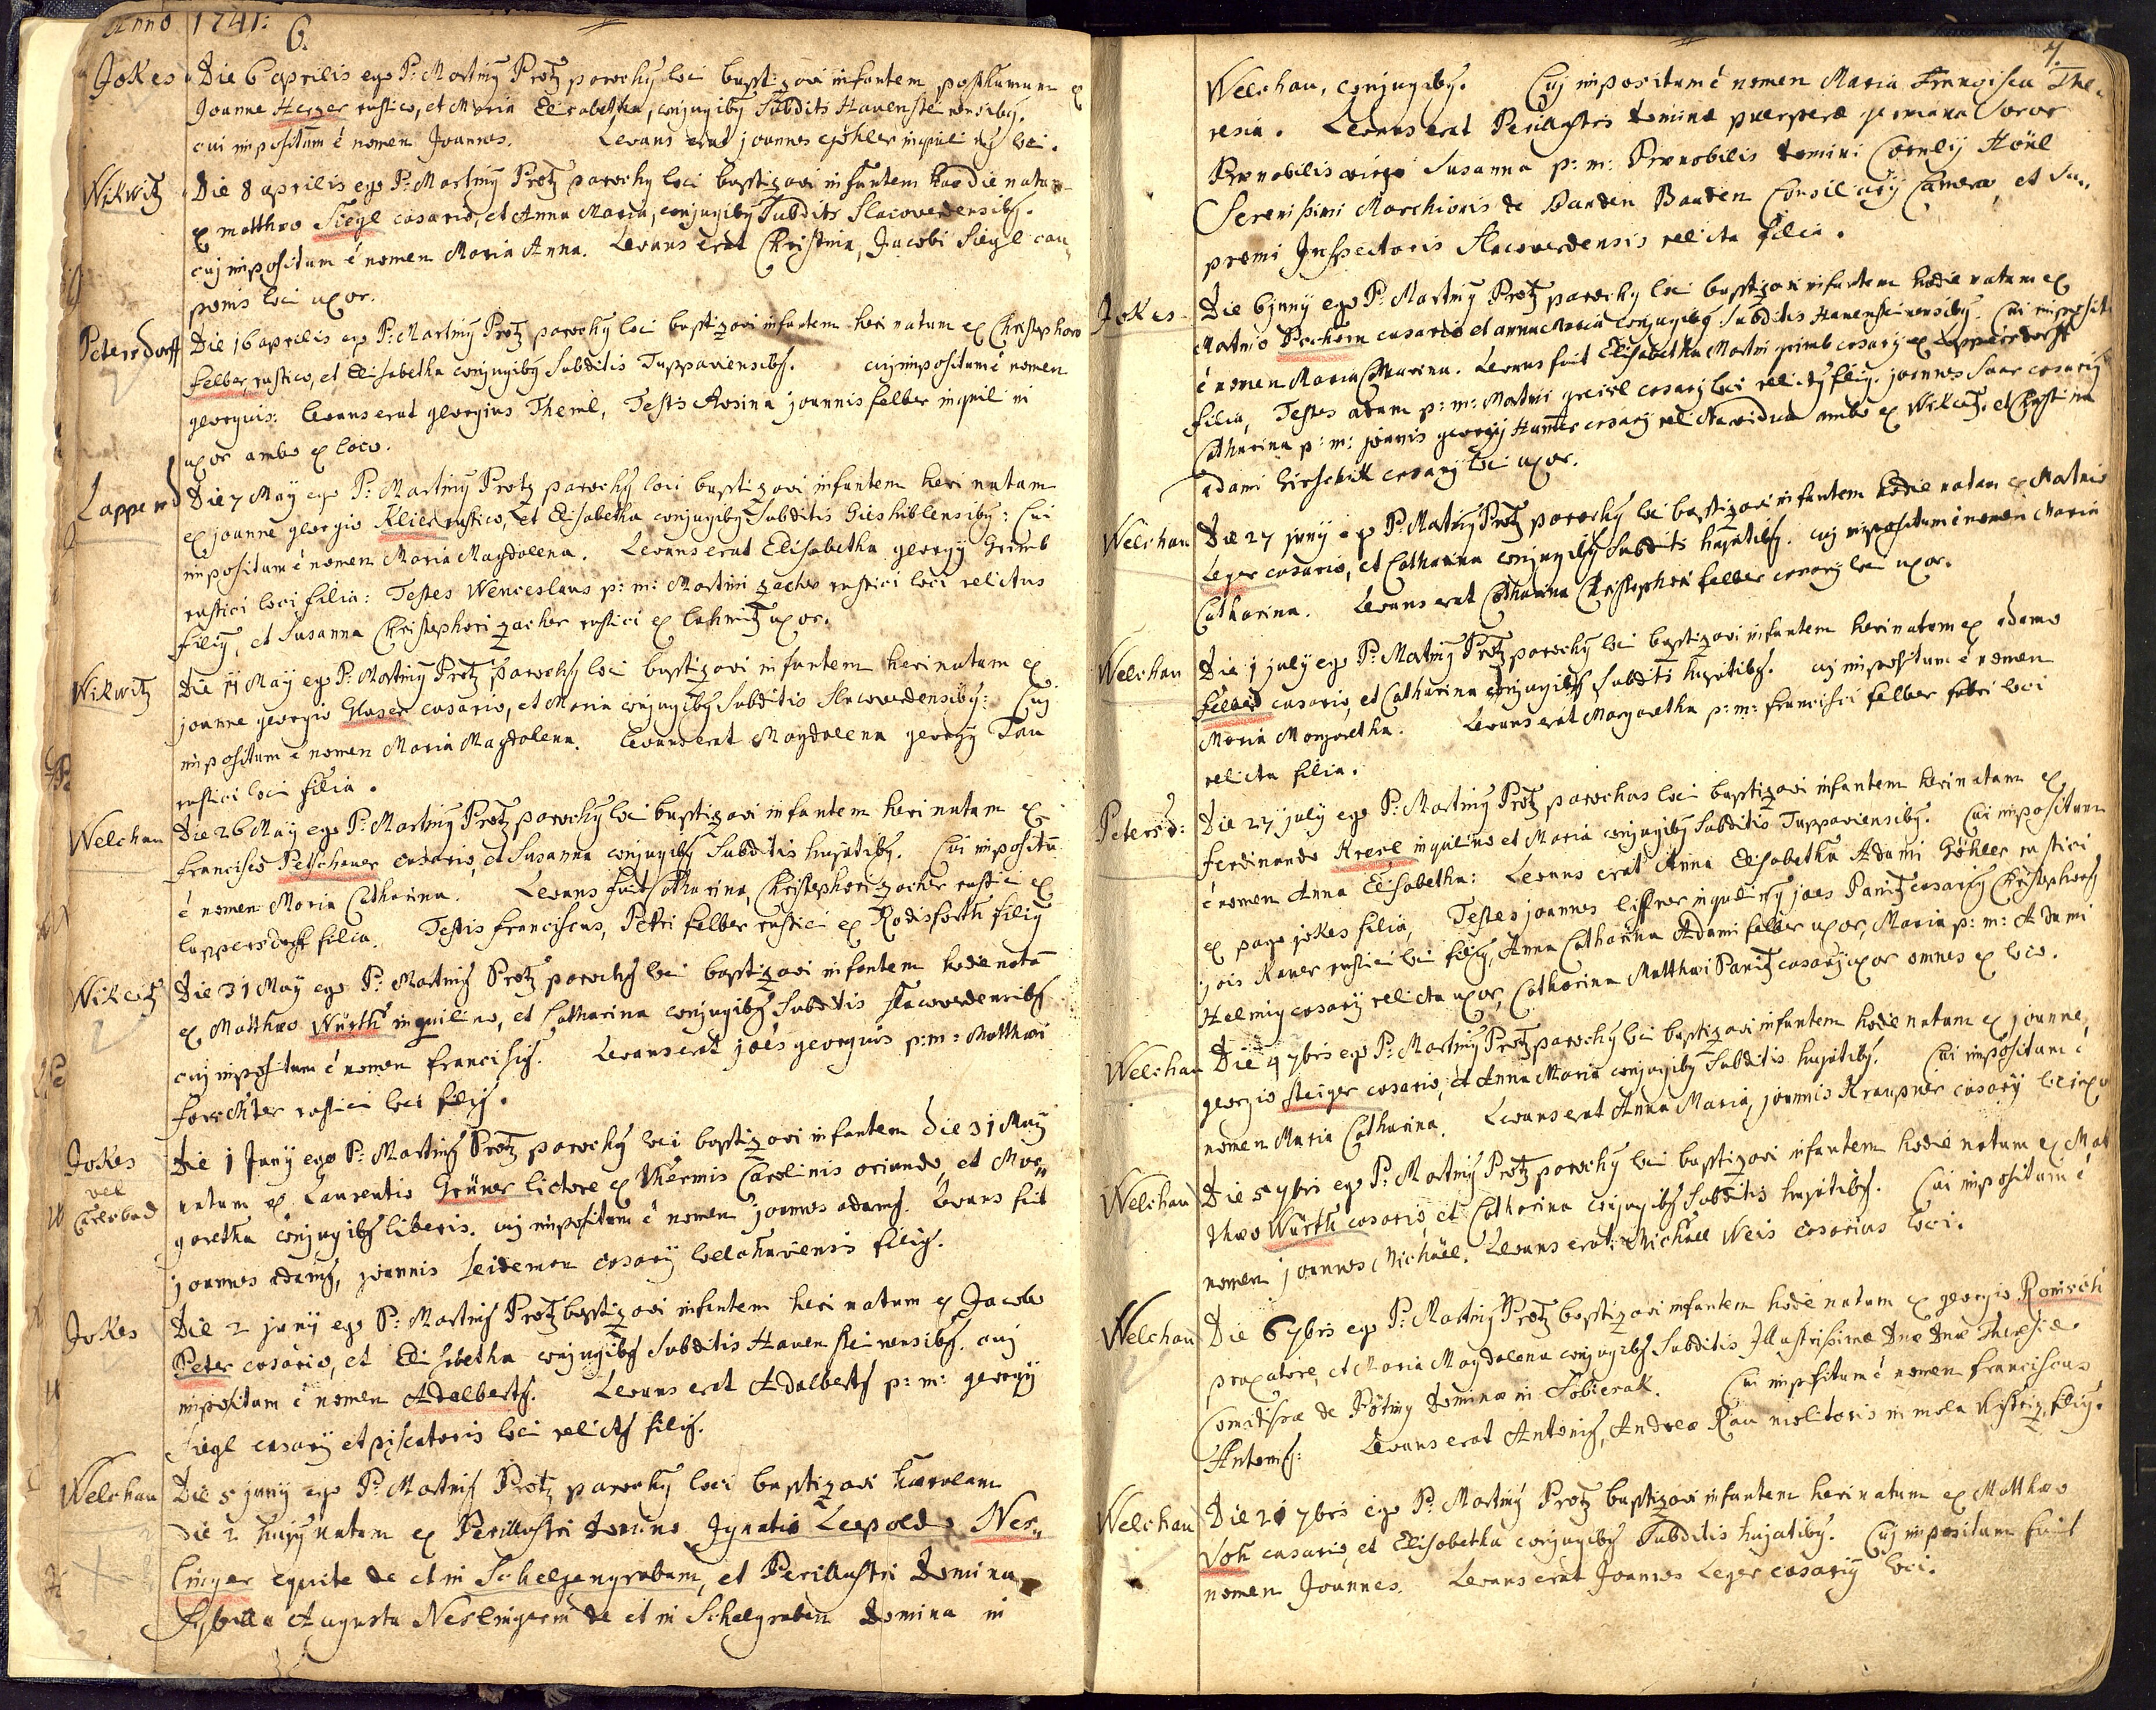 Anno 1741: 6.
Jokes Die 6 aprilis ego P: Martinỹ Protz parochỹ loci baptizavi infantem posthumum ex
Joanne Herger rustico, et Maria Elisabetha, conjugibỹ Subditis Hauensteinensibỹ.
cui impositum é nomen Joannes. Levans erat joannes Göhler inquilinỹ loci.
Wikwitz Die 8 aprilis ego P: Martinỹ Protz parochỹ loci baptizavi infantem hodie natam
ex matthæo Siegl casario, et Anna Maria, conjugibỹ Subditis Slacoverdensibỹ.
cuj impositum é nomen Maria Anna. Levans erat Christina, Jacobi Siegl cau
ponis loci uxor.
Petersdorff Die 16 aprilis ego P: Martinỹ Protz parochỹ loci baptizavi infantem heri natum ex Christophoro
felber, rustico, et Elisabetha conjugibỹ Subditis Tuppaviensibỹ. cuj impositum é nomen
georgius: levans erat georgius Theml, Testis Rosina joannis felber inquilini
uxor ambo ex loco.
Lappersd Die 7 Maÿ ego P: Martinỹ Protz parochỹ loci baptizavi infantem heri natam
ex joanne georgio Klier rustico, et Elisabetha conjugibỹ Subditis Gieshiblensibỹ: Cui
impositum é nomen Maria Magdalena. Levans erat Elisabetha georgÿ Grimb
rustici loci filia: Testes Wenceslaus p: m: Martini zacher rustici loci relictus
filiỹ, et Susanna Christophori zacher rustici ex Lochnitz uxor.
Wikwitz Die 11 Maÿ ego P: Martinỹ Protz parochỹ loci baptizavi infantem heri natam ex
joanne georgio Glaser casario, et Maria conjugibỹ Subditis Slacoverdensibỹ: Cuj
impositum é nomen Maria Magdalena. Levans erat Magdalena georgÿ Tau
rustici loci filia.
Welchau Die 26 Maÿ ego P: Martinỹ Protz parochỹ loci baptizavi infantem heri natam ex
francisco Petschauer casario, et Susanna conjugibỹ Subditis hujatibỹ. Cui impositū
é nomen Maria Catharina. Levans fuit Catharina, Christophori zacher rustici ex
lappersdorff filia. Testis franciscus, Petri felber rustici ex Rodisforth filiỹ
Wikwitz Die 31 Maÿ ego P: Martinỹ Protz parochỹ loci baptizavi infantem hodie natū
ex Matthæo Würth inquilino, et Catharina conjugibỹ Subditis slacoverdensibỹ
cuj impositum é nomen franciscỹ. Levans erat jões georgius p: m: Matthæi
forechter rustici loci filiỹ.
Jokes vel Carlsbad Die 1 Junÿ ego P: Martinỹ Protz parochỹ loci baptizavi infantem die 31 Maÿ
natum ex Laurentio Grüner lictore ex Thermis Carolinis oriundo, et Mar
garetha conjugibỹ liberis. cuj impositum é nomen joannes adamỹ. Levans fuit
joannes adamỹ, joannis leideman casarÿ welchaviensis filiỹ.
Jokes Die 2 junÿ ego P: Martinỹ Protz baptizavi infantem heri natum ex Jacobo
Peter casario, et Elisabetha conjugibỹ Subditis Hauensteinensibỹ. cuj
impositum é nomen Adalbertỹ. Levans erat Adalbertỹ p: m: georgÿ
Siegl casarÿ et piscatoris loci relictỹ filiỹ.
Welchau Die 5 junÿ ego P: Martinỹ Protz parochỹ loci baptizavi
die 2 hujỹ natam ex Perillustri Domino Ignatio Leopoldo Nes
linger equite de et in Schelgengrabam, et Perillustri Domina
Sybilla Augusta Neslingerin de et in Schelgraben Domina in
7.
Welchau, conjugibỹ. Cuj impositum é nomen Maria Francisca The
resia. Levans erat Perillustris Dominæ puerperæ germana Soror
Prænobilis virgo Susanna p: m: Prænobilis Domini Cornelÿ Höül
Serenissimi Marchionis de Baaden Baaden Consiliarÿ Cameræ, et Su
premi Inspectoris Slacoverdensis relicta filia.
Jokes Die 6 junÿ ego P: Martinỹ Protz parochỹ loci baptizavi infantem hodie natam ex
Martino Pechem casario et anna Maria conjugibỹ Subditis Hauensteinensibỹ. Cui imposit
é nomen Maria Catharina. Levans fuit Elisabetha Martini grimb casarÿ ex Lappersdorff
filia, Testes adam p: m: Martini greisl casarÿ loci relictỹ filiỹ. joannes Saar casariỹ
Catharina p: m: joannis georgÿ Hunter casarÿ relicta vidua ambo ex Wikwitz. et Christina
adami Girschik casarÿ loci uxor.
Welchau Die 27 junÿ ego P: Martinỹ Protz parochỹ loci baptizavi infantem hodie natam ex Martino
Leger casario, et Catharina conjugibỹ Subditis hujatibỹ. cuj impositum é nomen Maria
Catharina. Levans erat Catharina Christophori felber casarÿ loci uxor.
Welchau Die 1 julÿ ego P: Martinỹ Protz parochỹ loci baptizavi infantem heri natam ex adamo
felber casario, et Catharina conjugibỹ subditis hujatibỹ. cuj impositum é nomen
Maria Margaretha. Levans erat Margaretha p: m: francisci felber fabri loci
relicta filia.
Petersd: Die 27 julÿ ego P: Martinỹ Protz parochus loci baptizavi infantem heri natam ex
ferdinando Kreisl inquilino et Maria conjugibỹ Subditis Tuppaviensibỹ. Cui impositum
é nomen Anna Elisabetha: Levans erat Anna Elisabetha Adami Göhler rustici
ex pago jokes filia, Testes joannes liffner inquilinỹ joes Panitz casariỹ Christophorỹ
jois Kauer rustici loci filiỹ, Anna Catharina Adami felber uxor, Maria p: m: Adami
Helmig casarÿ relicta uxor, Catharina Matthæi Panitz casarÿ uxor omnes ex loco.
Welchau Die 4 7bris ego P: Martinỹ Protz parochỹ loci baptizavi infantem hodie natam ex joanne
georgio steiger casario, et Anna Maria conjugibỹ Subditis hujatibỹ. Cui impositum é
nomen Maria Catharina. Levans erat Anna Maria, joannis Kraupner casarÿ loci uxor
Welchau Die 5 7bris ego P: Martinỹ Protz parochỹ loci baptizavi infantem hodie natum ex Mat
thæo Würth casario, et Catharina conjugibỹ Subditis hujatibỹ. Cui impositum é
nomen joannes Michäel. Levans erat Michäel Weis casarius loci.
Welchau Die 6 7bris ego P: Martinỹ Protz baptizavi infantem hodie natum ex georgio Romisch
praxatore, et Maria Magdalena conjugibỹ Subditis Illustrissimæ Dnæ Dnæ Theresiæ
Comitissæ de Pötting Dominæ in Sobierak. Cui impositum é nomen franciscus
Antoniỹ: Levans erat Antoniỹ, Andreæ Rau molitoris in mola filiỹ.
Welchau Die 21 7bris ego P: Martinỹ Protz baptizavi infantem heri natum ex Matthæo
Voh casario, et Elisabetha conjugibỹ Subditis hujatibỹ. Cuj impositum fuit
nomen Joannes. Levans erat Joannes Leger casariỹ loci.